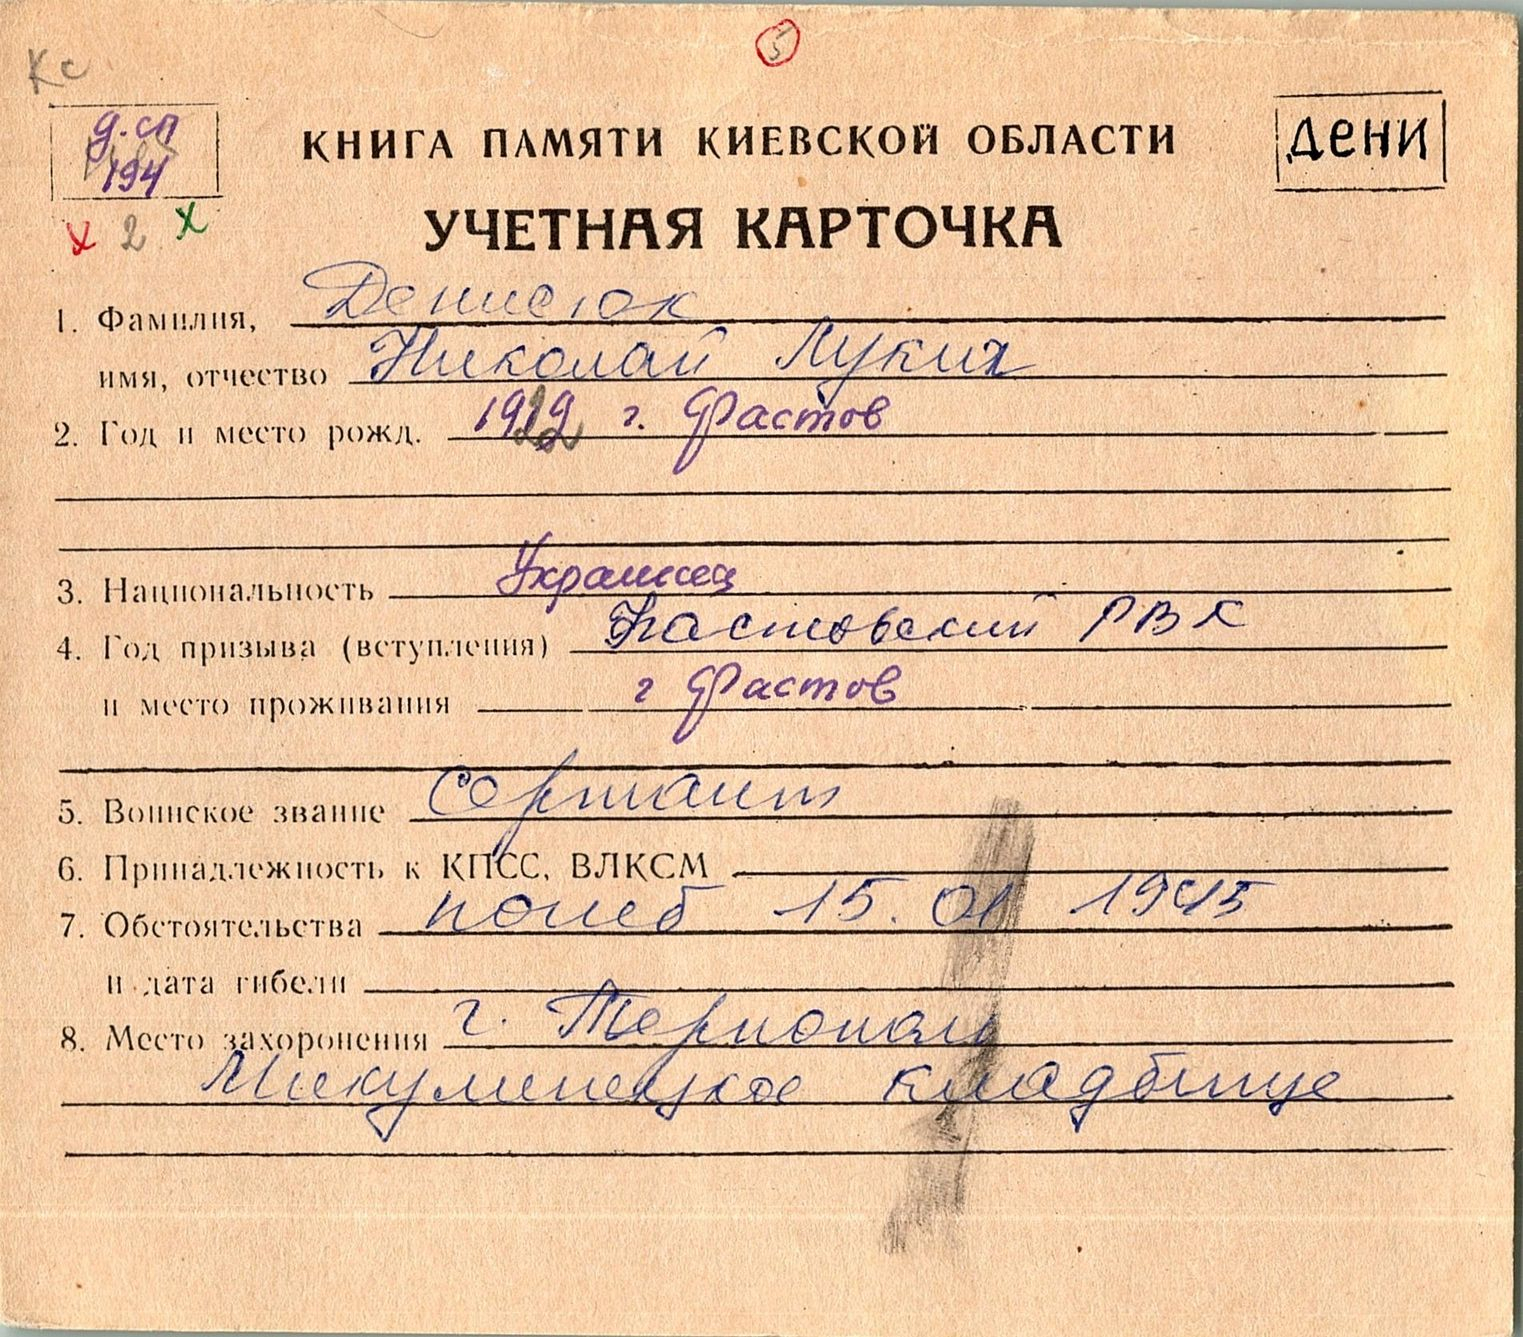 Кс
5
д.сп
194
КНИГА ПАМЯТИ КИЕВСКОЙ ОБЛАСТИ
дени
х 2 х
УЧЕТНАЯ КАРТОЧКА
1. Фамилия, Денисюк
имя, отчество Николай Лукич
2. Год и место рожд. г. Фастов
3. Национальность Украинец
4. Год призыва (вступления) Фастовский РВК
и место проживания г Фастов
5. Воинское звание Сержант
6. Принадлежность к КПСС, ВЛКСМ
7. Обстоятельства погиб 15.01 1945
и дата гибели
8. Место захоронения г. Тернополь
Микулинецкое кладбище